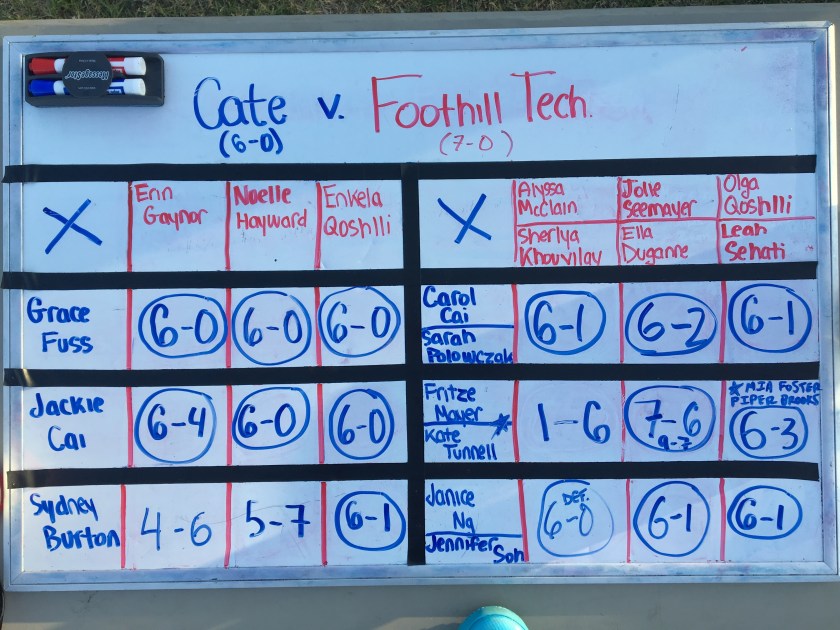 Cate v. Foothill Tech.
(6-0) (7-0)
X
Erin
Gaynor
Noelle
Hayward
Enkela
Qoshlli
Grace
Fuss
6-0 6-0 6-0
Jackie
Cai
6-4 6-0 6-0
Sydney
Burton
4-6 5-7 6-1
X
Alyssa
McClain
Jolie
Seemayer
Olga
Qoshlli
Sherlya
Khouvilay
Ella
Duganne
Leah
Sehati
Carol
Cai
Sarah
Polowczak
6-1 6-2 6-1
Fritze
Mayer
Kate
Tunnell
1-6
7-6
9-7
* MIA FOSTER
PIPER BROOKS
6-3
Janice
Ng
Jennifer Soh
DEF.
6-0 6-1 6-1